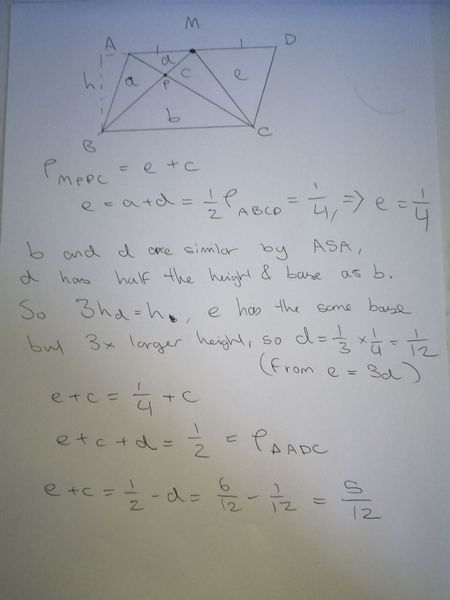 M
A D
d
h a P c e
b
B C
ρ_MPPC = e + c
e = a + d = 1/2 ρ_ABCD = 1/4, => e = 1/4
b and d are similar by ASA,
d has half the height & base as b.
So 3h_d = h, e has the same base
but 3x larger height, so d = 1/3 × 1/4 = 1/12
(from e = 3d)
e + c = 1/4 + c
e + c + d = 1/2 = ρ_ΔADC
e + c = 1/2 - d = 6/12 - 1/12 = 5/12